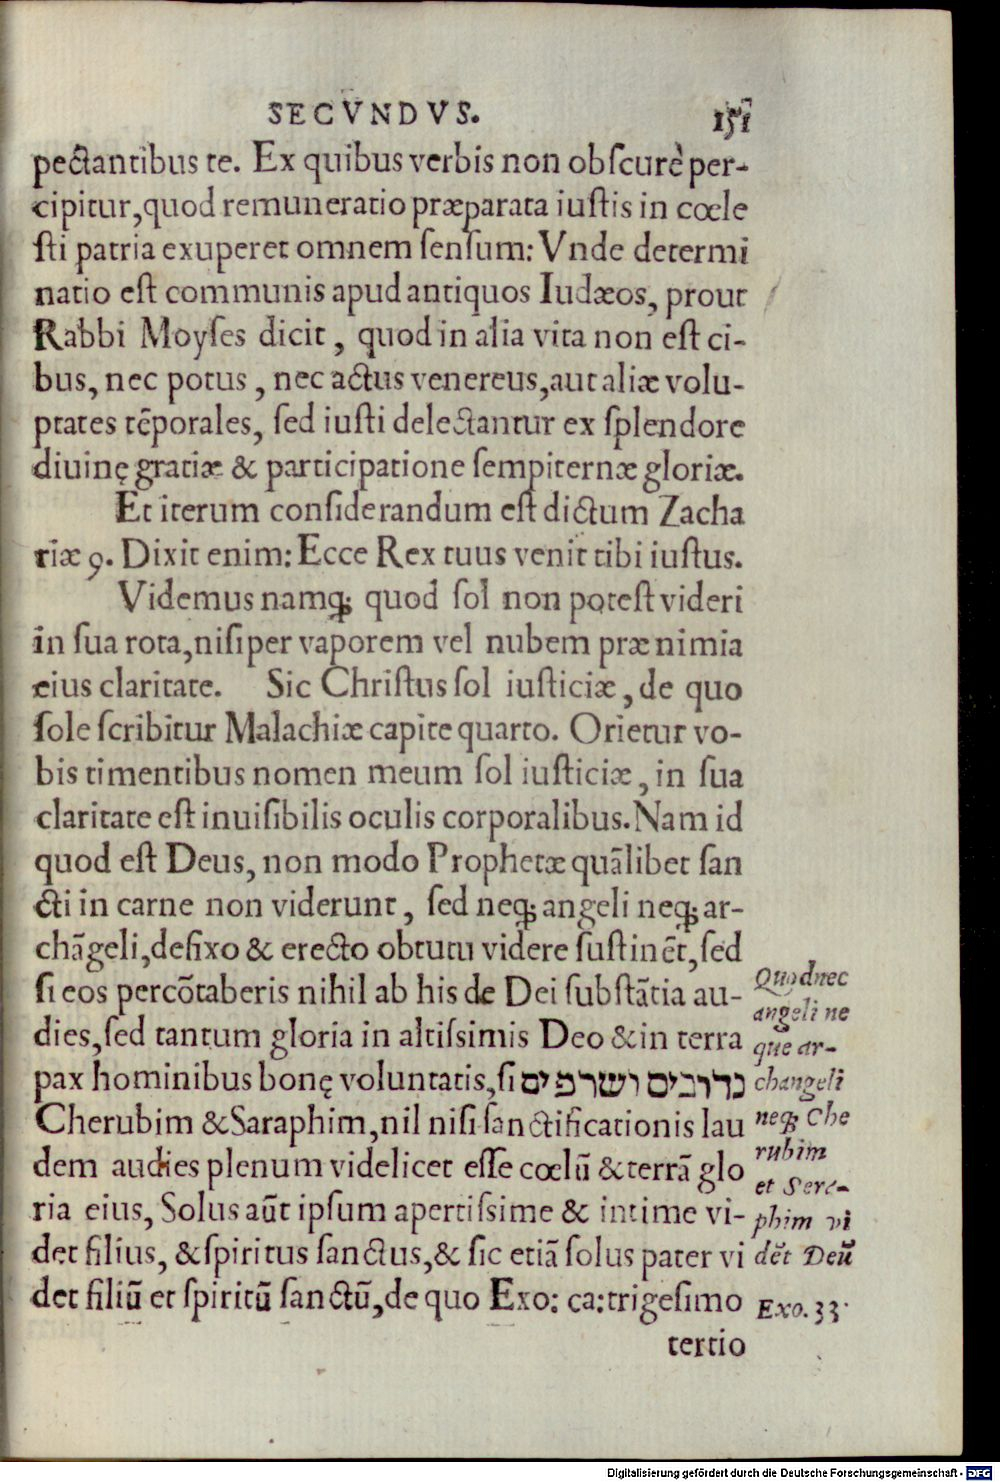 SECVNDVS. 151
pectantibus te. Ex quibus verbis non obſcurè per-
cipitur, quod remuneratio præparata iuſtis in cœle
ſti patria exuperet omnem ſenſum: Vnde determi
natio eſt communis apud antiquos Iudæos, prout
Rabbi Moyſes dicit, quod in alia vita non eſt ci-
bus, nec potus, nec actus venereus, aut aliæ volu-
ptates tēporales, ſed iuſti delectantur ex ſplendore
diuinę gratiæ & participatione ſempiternæ gloriæ.
Et iterum conſiderandum eſt dictum Zacha
riæ 9. Dixit enim: Ecce Rex tuus venit tibi iuſtus.
Videmus namq; quod ſol non poteſt videri
in ſua rota, niſi per vaporem vel nubem præ nimia
eius claritate. Sic Chriſtus ſol iuſticiæ, de quo
ſole ſcribitur Malachiæ capite quarto. Orietur vo-
bis timentibus nomen meum ſol iuſticiæ, in ſua
claritate eſt inuiſibilis oculis corporalibus. Nam id
quod eſt Deus, non modo Prophetæ quālibet ſan
cti in carne non viderunt, ſed neq; angeli neq; ar-
chāgeli, defixo & erecto obtutu videre ſuſtinēt, ſed
ſi eos percōtaberis nihil ab his de Dei ſubſtātia au-
dies, ſed tantum gloria in altiſsimis Deo & in terra
pax hominibus bonę voluntatis, ſi כדובים ושרפים
Cherubim & Saraphim, nil niſi ſanctificationis lau
dem audies plenum videlicet eſſe cœlū & terrā glo
ria eius, Solus aūt ipſum apertiſsime & intime vi-
det filius, & ſpiritus ſanctus, & ſic etiā ſolus pater vi
det filiū et ſpiritū ſanctū, de quo Exo: ca: trigeſimo
tertio
Quod nec
angeli ne
que ar-
changeli
neq; Che
rubim
et Sere-
phim vi
dēt Deū
Exo. 33.
Digitalisierung gefördert durch die Deutsche Forschungsgemeinschaft - DFG